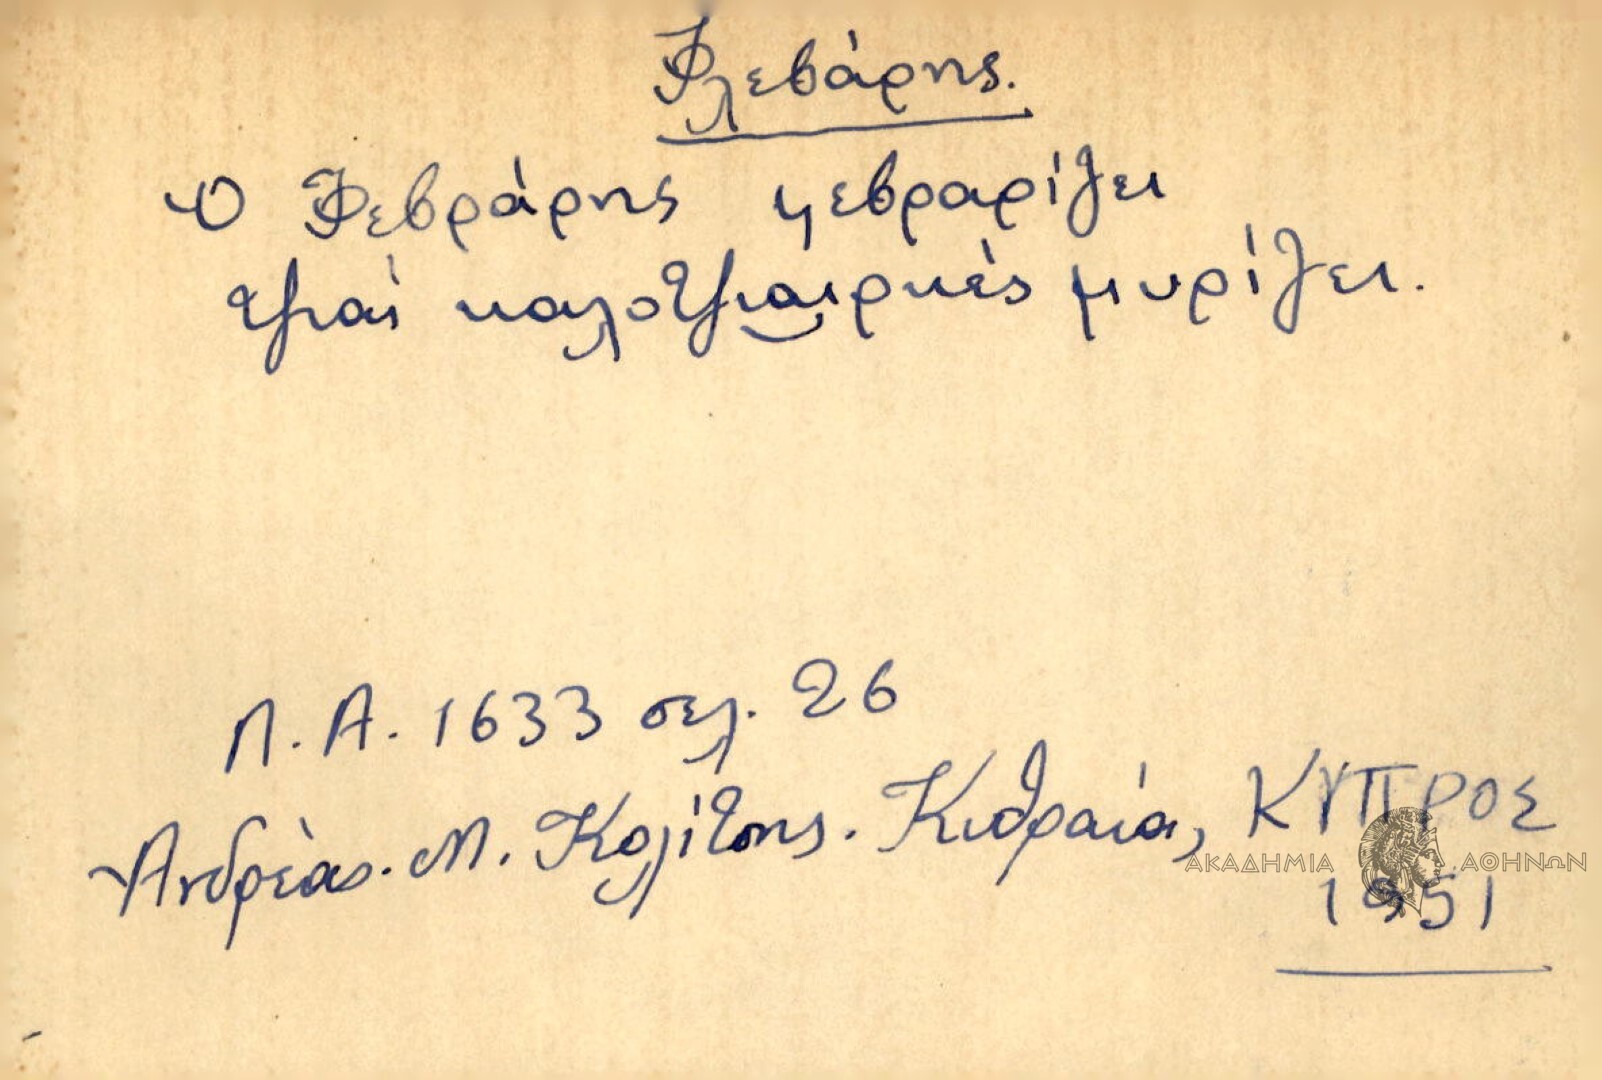 Φλεβάρης.
Ὁ Φεβράρης φεβραρίζει
τζιαί καλοτζιαιρκές μυρίζει.
Λ. Α. 1633 σελ. 26
Ἀνδρέας. Μ. Κολίτσης. Κυθραία, ΚΥΠΡΟΣ
ΑΚΑΔΗΜΙΑ ΑΘΗΝΩΝ
1951